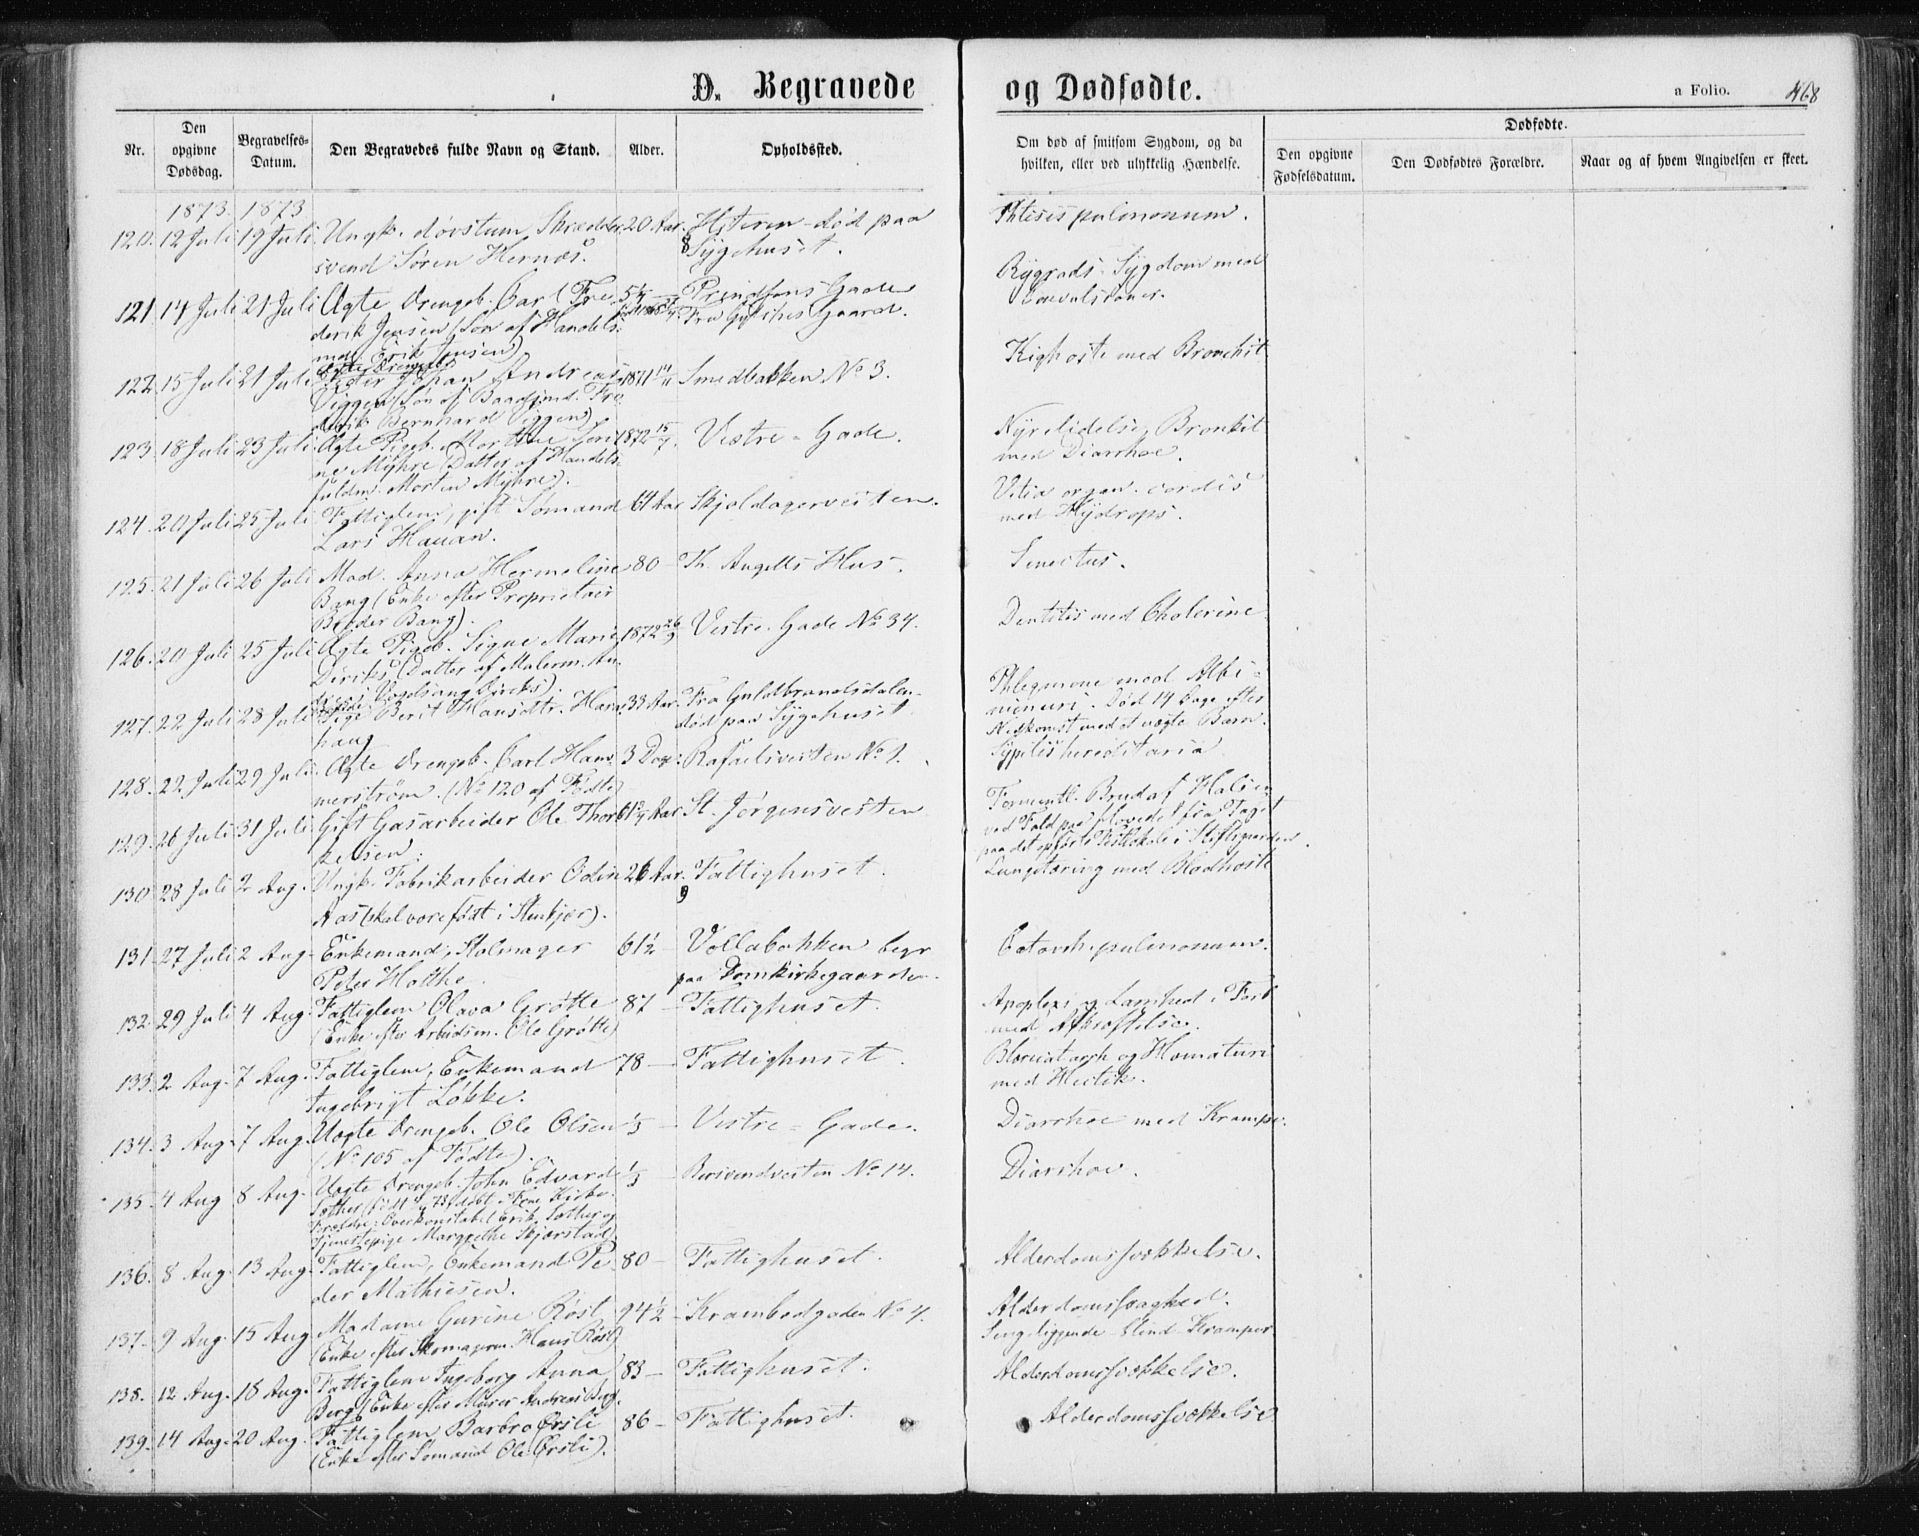 D. Begravede og Dødfødte.
a Folio. 468
Nr.
Den opgivne Dødsdag.
Begravelses-Datum.
Den Begravedes fulde Navn og Stand.
Alder.
Opholdssted.
Om død af smitsom Sygdom, og da hvilken, eller ved ulykkelig Hændelse.
Dødfødte.
Den opgivne Fødselsdatum.
Den Dødfødtes Forældre.
Naar og af hvem Angivelsen er skeet.
1873. 1873
120. 12 Juli 19 Juli Ungk. døvstum Skrædder 20 Aar. Hiteren - død paa Phtisis pulmonum.
svend Søren Hernæs. Sygehuset.
121. 14 Juli 21 Juli Ægte Drengeb. Carl Fre Prindsens Gade Rygrads-Sygdom med
derik Jensen (Søn af Handels- Fra Gaard. Convulsioner.
md. Erik Jensen)
Ægte Drengeb.
122. 15 Juli 21 Juli Peter Johan Andreas 1871 14/11 Smedbakken No 3. Kighoste med Bronchit
Viggen (Søn af Baadsmd. Fre
derik Bernhard Viggen)
123. 18 Juli 23 Juli Ægte Pigeb. Marthe Sori 1872 15/7. Vestre-Gade. Nyrelidelse, Bronkit
ne Myhre Datter af Handels- med Diarrhoe.
fuldm. Morten Myhre).
124. 20 Juli 25 Juli Fattiglem, gift Sømand Aar Skjoldagerveiten. Vitia organ. cordis
Lars Hauan. med Hydrops.
125. 21 Juli 26 Juli Mad. Anna Hermeline 80 - Th. Angells Hus. Senectus.
Bang (Enke efter Proprietair
Bang).
126. 20 Juli 25 Juli Ægte Pigeb. Signe Marie 1872 26/9 Vestre Gade No 34. Dentitis med Cholerine
Diriks (Datter af Malerm. An
dreas Vogelsang Diriks).
127. 22 Juli 28 Juli Pige Berit Hansdtr. Ham 33 Aar. Fra Guldbrandsdalen- Phlegmone med Albu-
haug død paa Sygehuset minuri. Død 14 Dage efter
Nedkomst med et uægte Barn.
128. 22 Juli 29 Juli. Ægte Drengeb. Carl Ham 3 Dag: Rafaelsveiten No 1. Syphilis hereditaria
merström. (No 120 af Fødte)
129. 26 Juli 31 Juli Gift Gasarbeider Ole Thor Aar St. Jørgensveiten Formentl. Brud af Halsen
kelsen. ved Fald paa Hovedet fra Taget
paa det opførte Festlokale i Stiftsgaarden.
130. 28 Juli 2 Aug. Ungk. Fabrikarbeider Odin 26 Aar. Fattighuset. Lungetæring med Blodhoste
Aas (skal være født i Stenkjær).
131. 27 Juli 2 Aug. Enkemand, Stolmager 61½ - Vollabakken begr. Catarrh pulmonum.
Peter Holthe. paa Domkirkegaarden.
132. 29 Juli 4 Aug Fattiglem Olava Grøtte 87 - Fattighuset. Apoplexi og Lamhed i Forb
(Enke efter Arbeidsm. Ole Grøtte) med Afkræftelse.
133. 2 Aug. 7 Aug. Fattiglem, Enkemand 78 - Fattighuset. Blærecatarrh og Hæmaturi
Ingebrigt Løkke. med Hectik.
134. 3 Aug. 7 Aug. Uægte Drengeb. Ole Olsen 1/5 - Vestre-Gade. Diarrhoe med Krampe.
(No 105 af Fødte).
135. 4 Aug 8 Aug. Uægte Drengeb. John Edvard 1/3 - Bersvendveiten No 14. Diarrhoe.
Sæther (født 73 døbt i Kirke.
Forældre: Overkonstabel Erik Sæther og
Tjenestepige Margrethe Skjærstad)
136. 8 Aug. 13 Aug. Fattiglem, Enkemand Pe 80 - Fattighuset. Alderdomssvækkelse.
der Mathiesen.
137. 9 Aug. 15 Aug Madame Gurine Røst 94½ - Krambodgaden No 4. Alderdomssvaghed.
(Enke efter Skomagerm. Hans Røst) Sengliggende - blind - Kramper
138. 12 Aug. 18 Aug. Fattiglem Ingeborg Anna 83 - Fattighuset. Alderdomssvækkelse.
Berg (Enke efter Murer Andreas Berg.
139. 14 Aug. 20 Aug. Fattiglem Barbro Ørsli 86 - Fattighuset. Alderdomssvækkelse
(Enke efter Sømand Ole Ørsli).